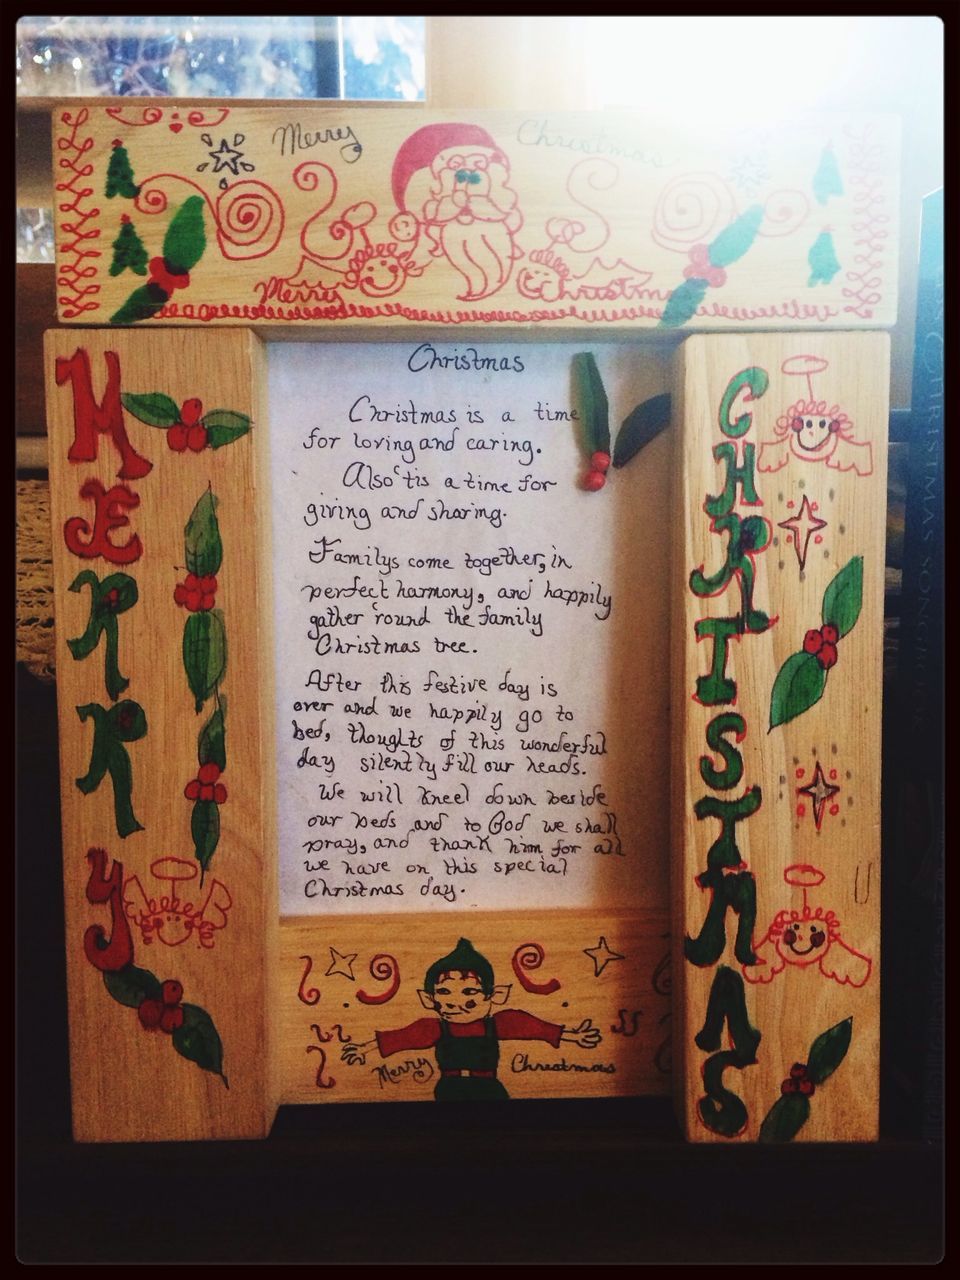 Merry Christmas
Merry Christmas
MERRY
CHRISTMAS
Christmas
Christmas is a time
for loving and caring.
Also 'tis a time for
giving and sharing.
Familys come together, in
perfect harmony, and happily
gather 'round the family
Christmas tree.
After this festive day is
over and we happily go to
bed, thoughts of this wonderful
day silently fill our heads.
We will kneel down beside
our beds and to God we shall
pray, and thank him for all
we have on this special
Christmas day.
Merry Christmas